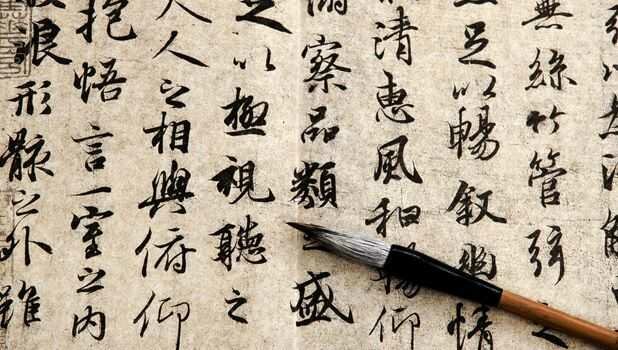 無絲竹管弦之
足以暢叙幽情
清惠風和暢仰
俯察品類之盛
足以極視聽之
人之相與俯仰
抱悟言一室之內
浪形骸之外雖